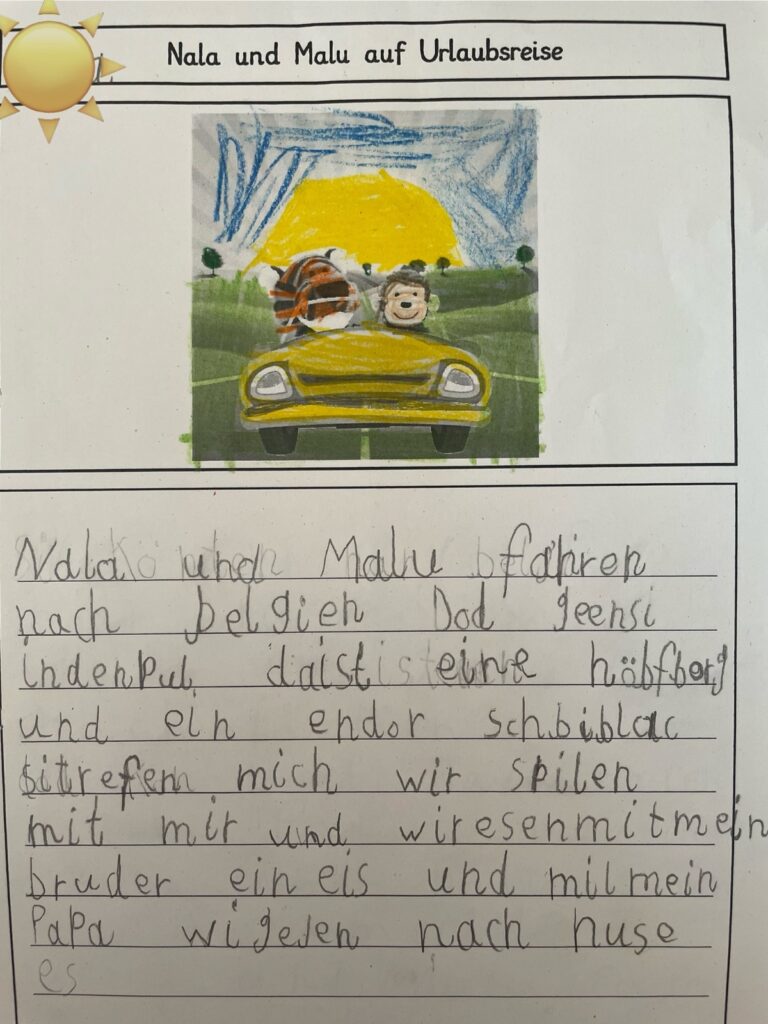 Nala und Malu auf Urlaubsreise
Nala und Malu fahren
nach belgien Dod geensi
indenpul daist eine höbfborg
und ein endor schbiblac
sitrefem mich wir spilen
mit mir und wiresenmitmein
bruder ein eis und mitmein
PaPa wi gejen nach huse
es